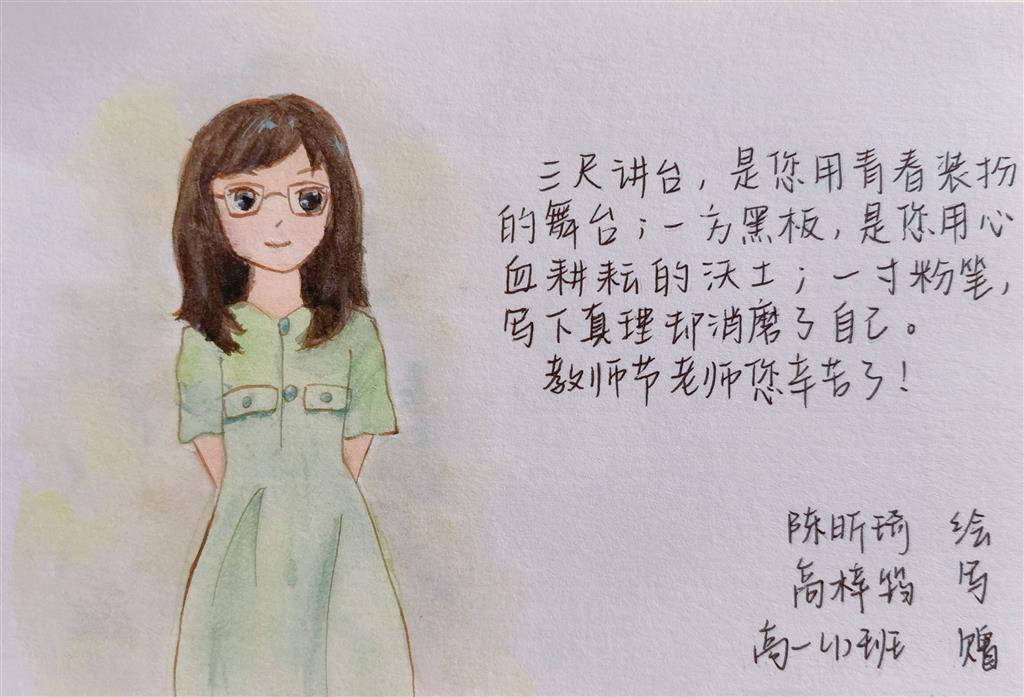 三尺讲台，是您用青春装扮
的舞台；一方黑板，是您用心
血耕耘的沃土；一寸粉笔，
写下真理却消磨了自己。
教师节老师您辛苦了！
陈昕琦 绘
高梓筠 写
高一(1)班 赠